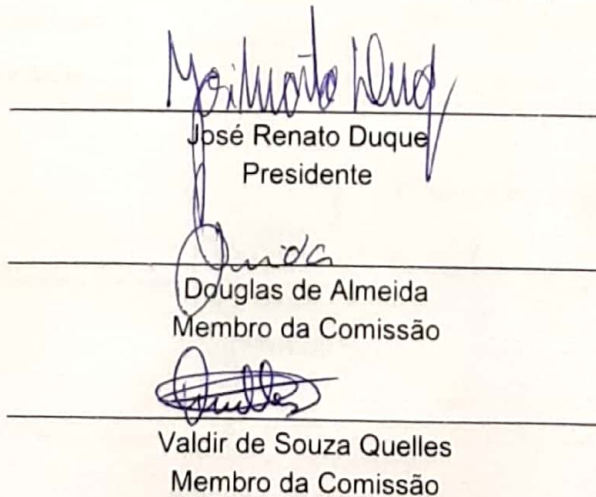 José Renato Duque
Presidente
Douglas de Almeida
Membro da Comissão
Quelles
Valdir de Souza Quelles
Membro da Comissão